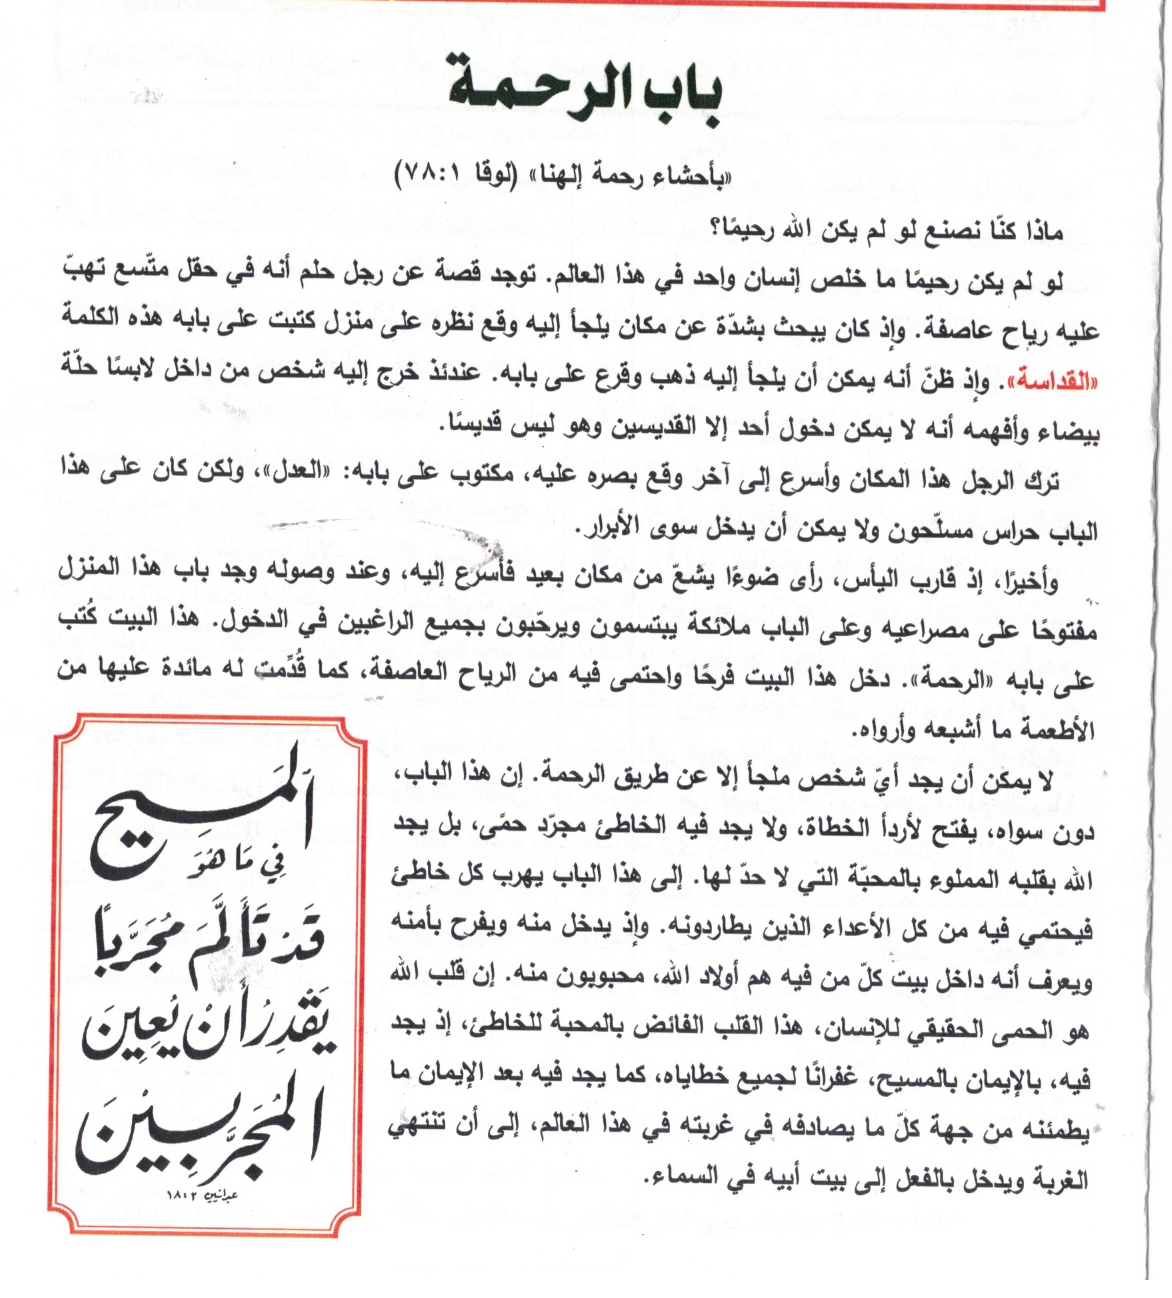 باب الرحمة
«بأحشاء رحمة إلهنا» (لوقا ٧٨:١)
ماذا كنّا نصنع لو لم يكن الله رحيمًا؟
لو لم يكن رحيمًا ما خلص إنسان واحد في هذا العالم. توجد قصة عن رجل حلم أنه في حقل متّسع تهبّ
عليه رياح عاصفة. وإذ كان يبحث بشدّة عن مكان يلجأ إليه وقع نظره على منزل كتبت على بابه هذه الكلمة
«القداسة». وإذ ظنّ أنه يمكن أن يلجأ إليه ذهب وقرع على بابه. عندئذ خرج إليه شخص من داخل لابسًا حلّة
بيضاء وأفهمه أنه لا يمكن دخول أحد إلا القديسين وهو ليس قديسًا.
ترك الرجل هذا المكان وأسرع إلى آخر وقع بصره عليه، مكتوب على بابه: «العدل»، ولكن كان على هذا
الباب حراس مسلّحون ولا يمكن أن يدخل سوى الأبرار.
وأخيرًا، إذ قارب اليأس، رأى ضوءًا يشعّ من مكان بعيد فأسرع إليه، وعند وصوله وجد باب هذا المنزل
مفتوحًا على مصراعيه وعلى الباب ملائكة يبتسمون ويرحّبون بجميع الراغبين في الدخول. هذا البيت كُتب
على بابه «الرحمة». دخل هذا البيت فرحًا واحتمى فيه من الرياح العاصفة، كما قُدِّمت له مائدة عليها من
الأطعمة ما أشبعه وأرواه.
لا يمكن أن يجد أيّ شخص ملجأ إلا عن طريق الرحمة. إن هذا الباب،
دون سواه، يفتح لأردأ الخطاة، ولا يجد فيه الخاطئ مجرّد حمًى، بل يجد
الله بقلبه المملوء بالمحبّة التي لا حدّ لها. إلى هذا الباب يهرب كل خاطئ
فيحتمي فيه من كل الأعداء الذين يطاردونه. وإذ يدخل منه ويفرح بأمنه
ويعرف أنه داخل بيت كلّ من فيه هم أولاد الله، محبوبون منه. إن قلب الله
هو الحمى الحقيقي للإنسان، هذا القلب الفائض بالمحبة للخاطئ، إذ يجد
فيه، بالإيمان بالمسيح، غفرانًا لجميع خطاياه، كما يجد فيه بعد الإيمان ما
يطمئنه من جهة كلّ ما يصادفه في غربته في هذا العالم، إلى أن تنتهي
الغربة ويدخل بالفعل إلى بيت أبيه في السماء.
اَلمَسيح
فِي مَا هُوَ
قَدْ تَأَلَّمَ مُجَرَّباً
يَقْدِرُ أَنْ يُعِينَ
المُجَرَّبِينَ
عبرانيين ١٨:٢